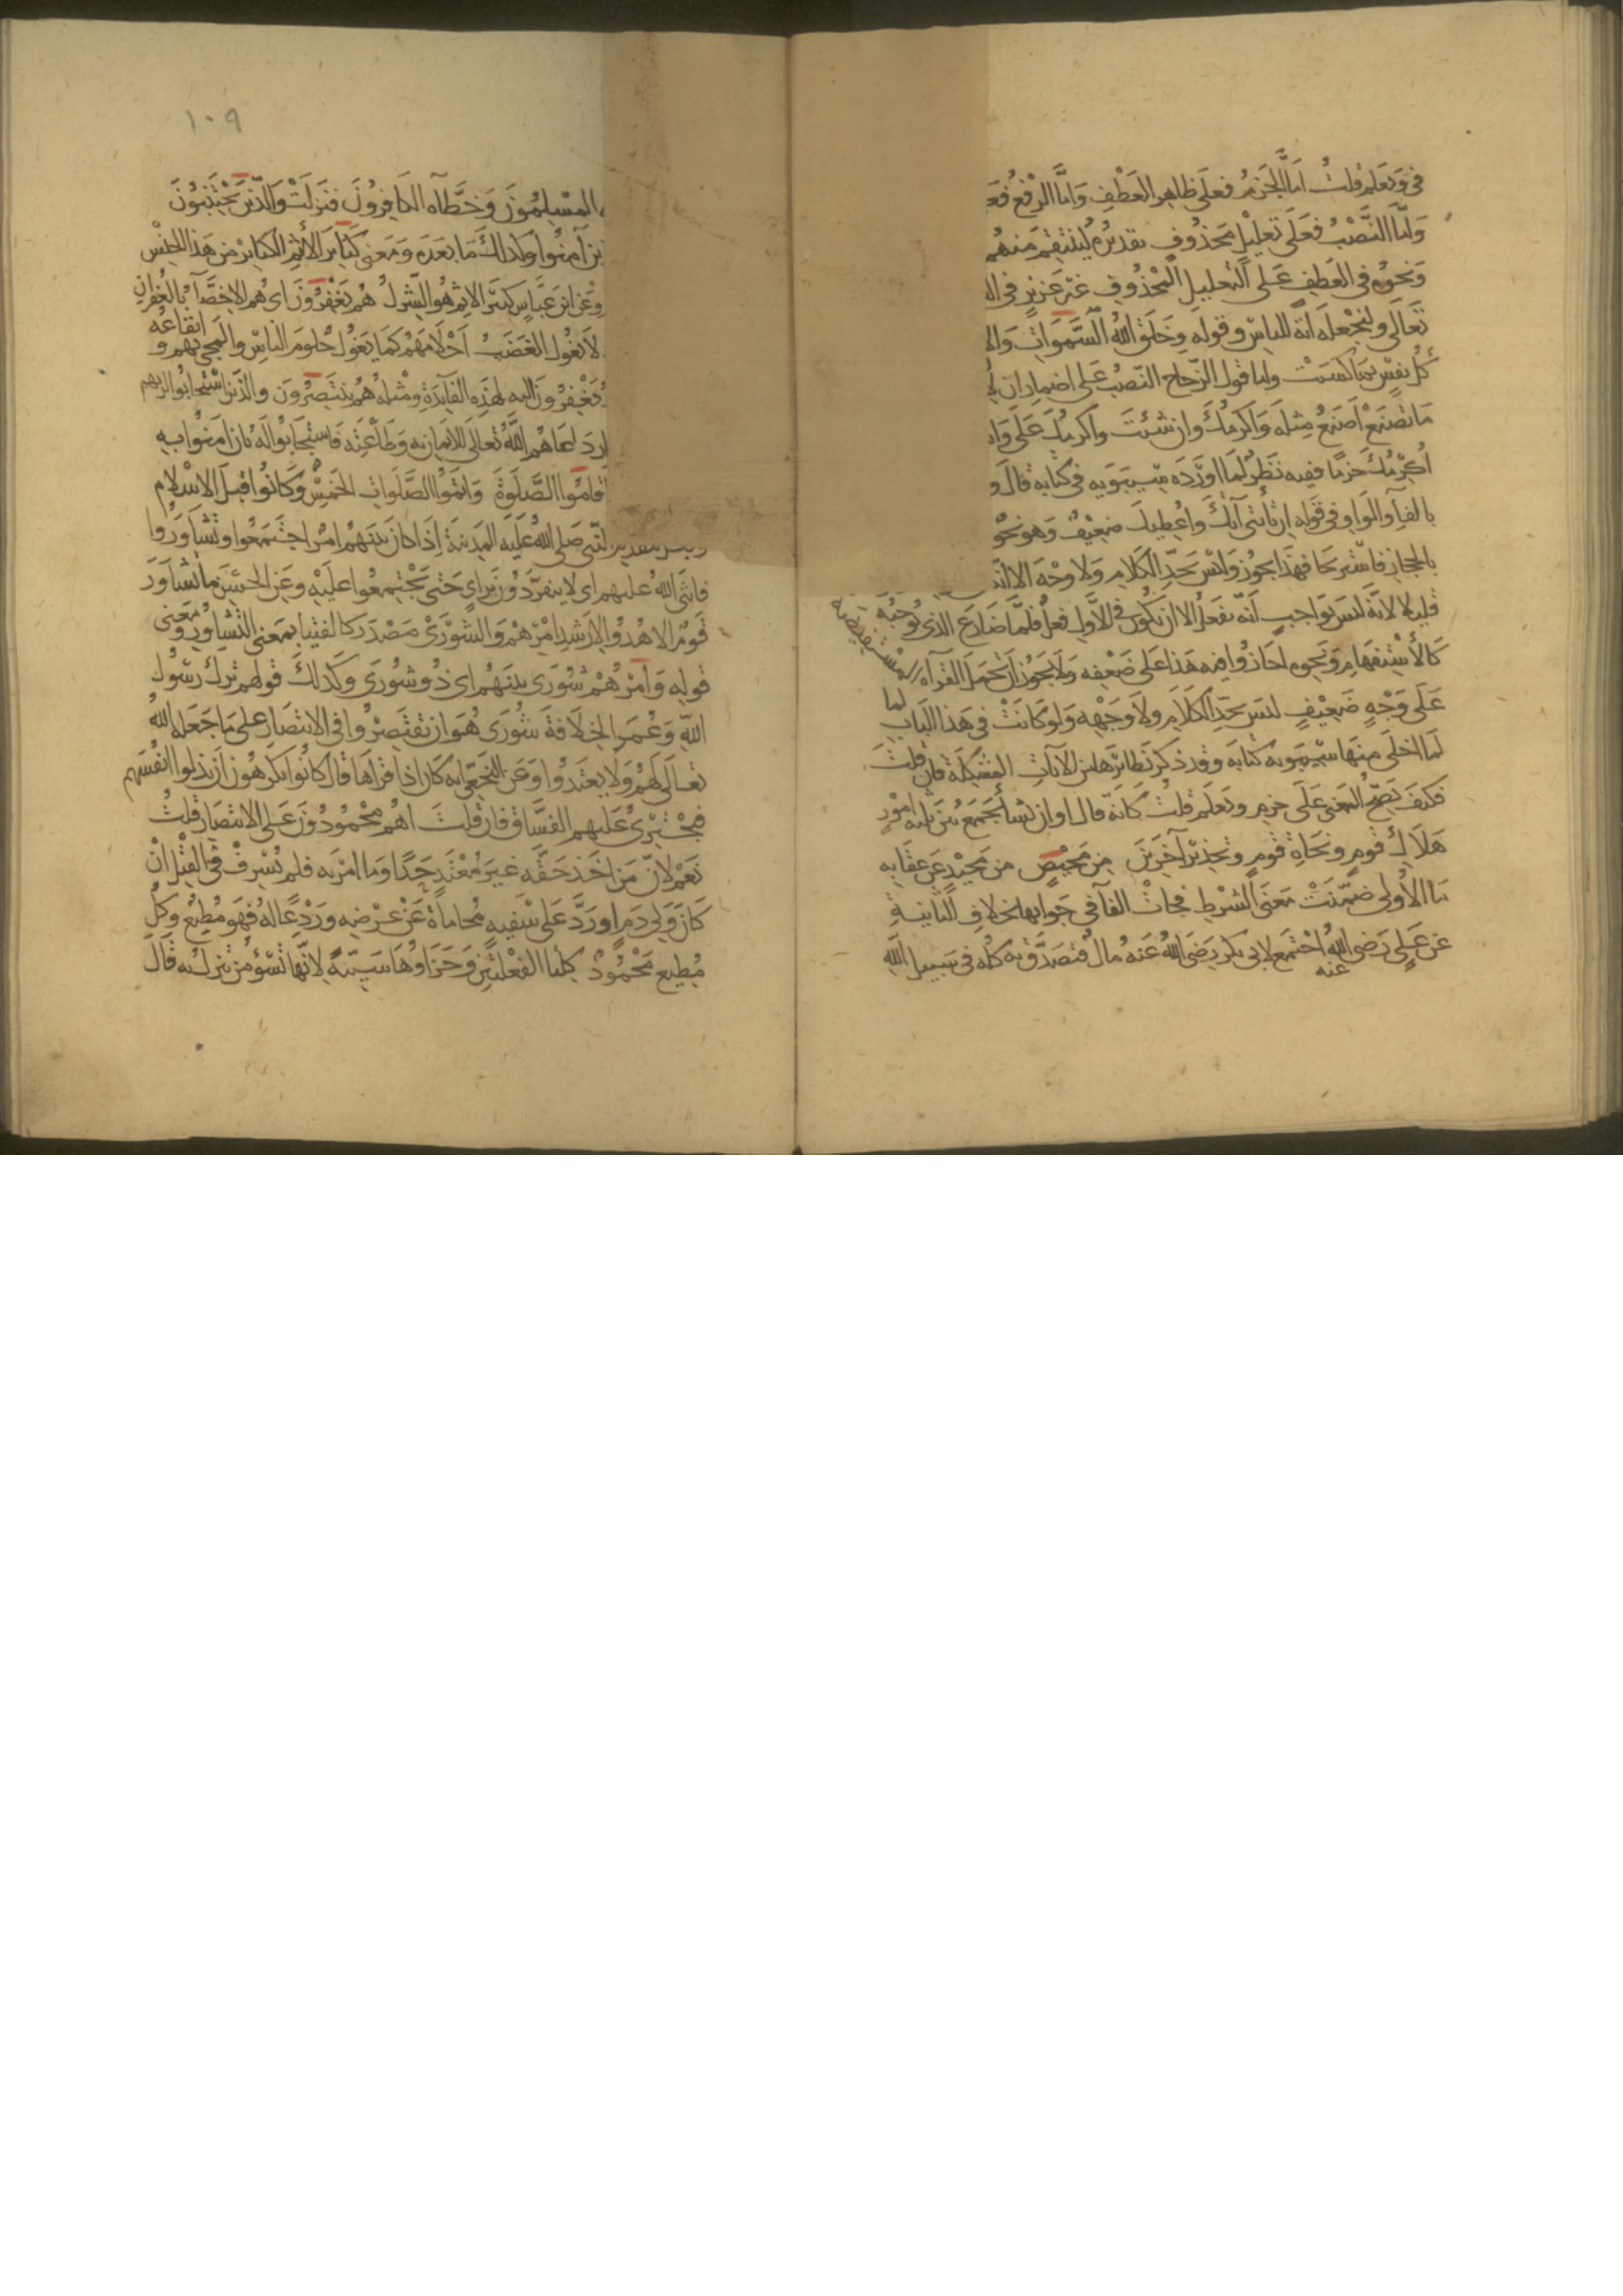 فى ويعلم قلت اما الجزم فعلى ظاهر العطف واما الرفع فعـ
واما النصب فعلى تعليل محذوف تقديره لينتقم منهم
ونحوه فى العطف على التعليل المحذوف غير عزيز فى الـ
تعالى ولنجعله آية للناس وقوله وخلق الله السموات والا
كل نفس بما كسبت واما قول الزجاج النصب على اضمار ان
ما تصنع أصنع مثله وأكرمك وان شئت وأكرمك على وا
أكرمك جزما ففيه نظر لما اورده سيبويه فى كتابه قال و
بالفآ والواو فى قوله ان تأتنى آتك وأعطيك ضعيف وهو نحو
بالحجاز فاستريحا فهذا يجوز وليس بحد الكلام ولا وجهه الا انه
قليلا لانه ليس بواجب أنه يفعل الا ان يكون فى الاول فعل فلما ضارع الذى يوجبه
كالاستفهام ونحوه اجازوا فيه هذا على ضعفه ولا يجوز أن تحمل القرآءة المستفيضة
على وجه ضعيف ليس بحد الكلام ولا وجهه ولو كانت فى هذا الباب لما
لما اخلى منها سيبويه كتابه وقد ذكر نظائرها من الآيات المشكلة فان قلت
فكيف يصح المعنى على جزم ويعلم قلت كانه قال او ان نشأ نجمع بين ثلثه امور
هلاك قوم ونجاة قوم وتحذير آخرين من محيص من محيد عن عقابه
ما الاولى ضمنت معنى الشرط فجات الفآ فى جوابها بخلاف الثانية
عن على رضى الله عنه اجتمع لابى بكر رضى الله عنه مال فتصدق به كله فى سبيل الله
١٠٩
المسلمون وخطآه الكافرون فنزلت والذين يجتنبون
ين آمنوا وكذلك ما بعده ومعنى كبائر الاثم الكبائر من هذا الجنس
وعن ابن عباس كبير الاثم هو الشرك هم يغفرون اى هم الاخصآ بالغفران
لا يغول الغضب أحلامهم كما يغول حلوم الناس والمجى بهم و ايقاعه
يغفرون اليه لهذه الفآيدة ومثله هم ينتصرون والذين استجابوا لربهم
دعاهم الله تعالى للايمان به وطاعته فاستجابوا له بان آمنوا به
قاموا الصلوة واتموا الصلوات الخمس وكانوا قبل الاسلام
النبى صلى الله عليه المدينة إذا كان بينهم امر اجتمعوا وتشاوروا
فاثنى الله عليهم اى لا ينفردون براى حتى يجتمعوا عليه وعن الحسن ما تشاور
قوم الا هدوا لارشد امرهم والشورى مصدر كالفتيا بمعنى التشاور ومعنى
قوله وأمرهم شورى بينهم اى ذو شورى وكذلك قولهم ترك رسول
الله وعمر الخلافة شورى هو ان يقتصروا فى الانتصار على ما جعله الله
تعالى لهم ولا يعتدوا وعن النخعى انه كان اذا قراها قال كانوا يكرهون أن يذلوا انفسهم
فيجترى عليهم الفساق فان قلت اهم محمودون على الانتصار قلت
نعم لان من اخذ حقه غير معتد حدا وما امر به فلم يسرف فى القتل ان
كان ولى دم او رد على سفيه محاماة عن عرضه وردعا له فهو مطيع وكل
مطيع محمود كلتا الفعلتين وجزاوها سيئة لانها تسؤ من تنزل به قال